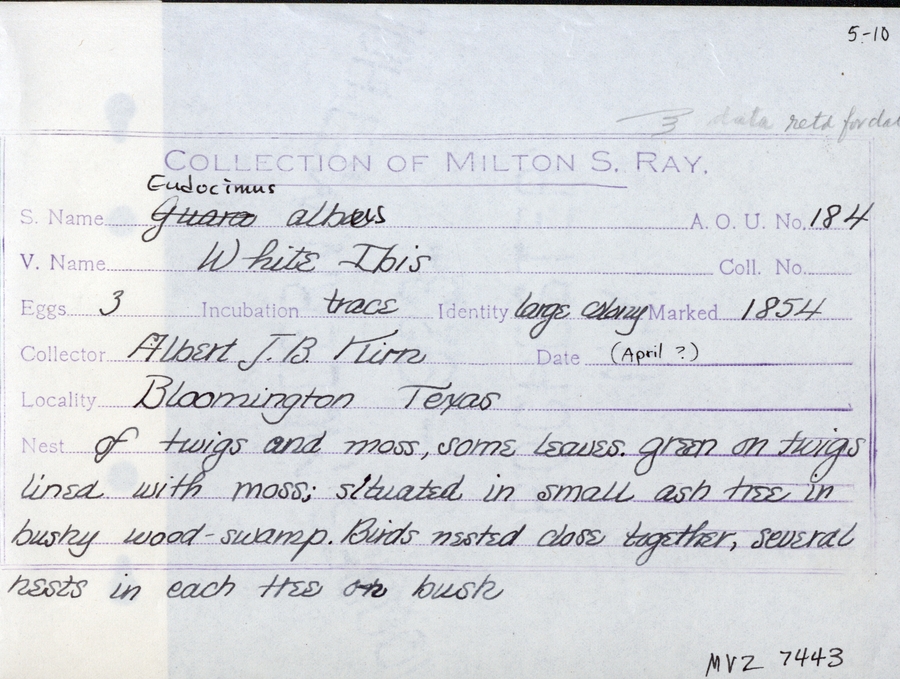 5-10
3 data retd for dat
COLLECTION OF MILTON S. RAY.
Eudocimus
S. Name Guara albus A. O. U. No. 184
V. Name White Ibis Coll. No.
Eggs 3 Incubation trace Identity large colony Marked 1854
Collector Albert J. B. Kirn Date (April ?)
Locality Bloomington Texas
Nest of twigs and moss, some leaves. green on twigs
lined with moss; situated in small ash tree in
bushy wood-swamp. Birds nested close together, several
nests in each tree or bush
MVZ 7443